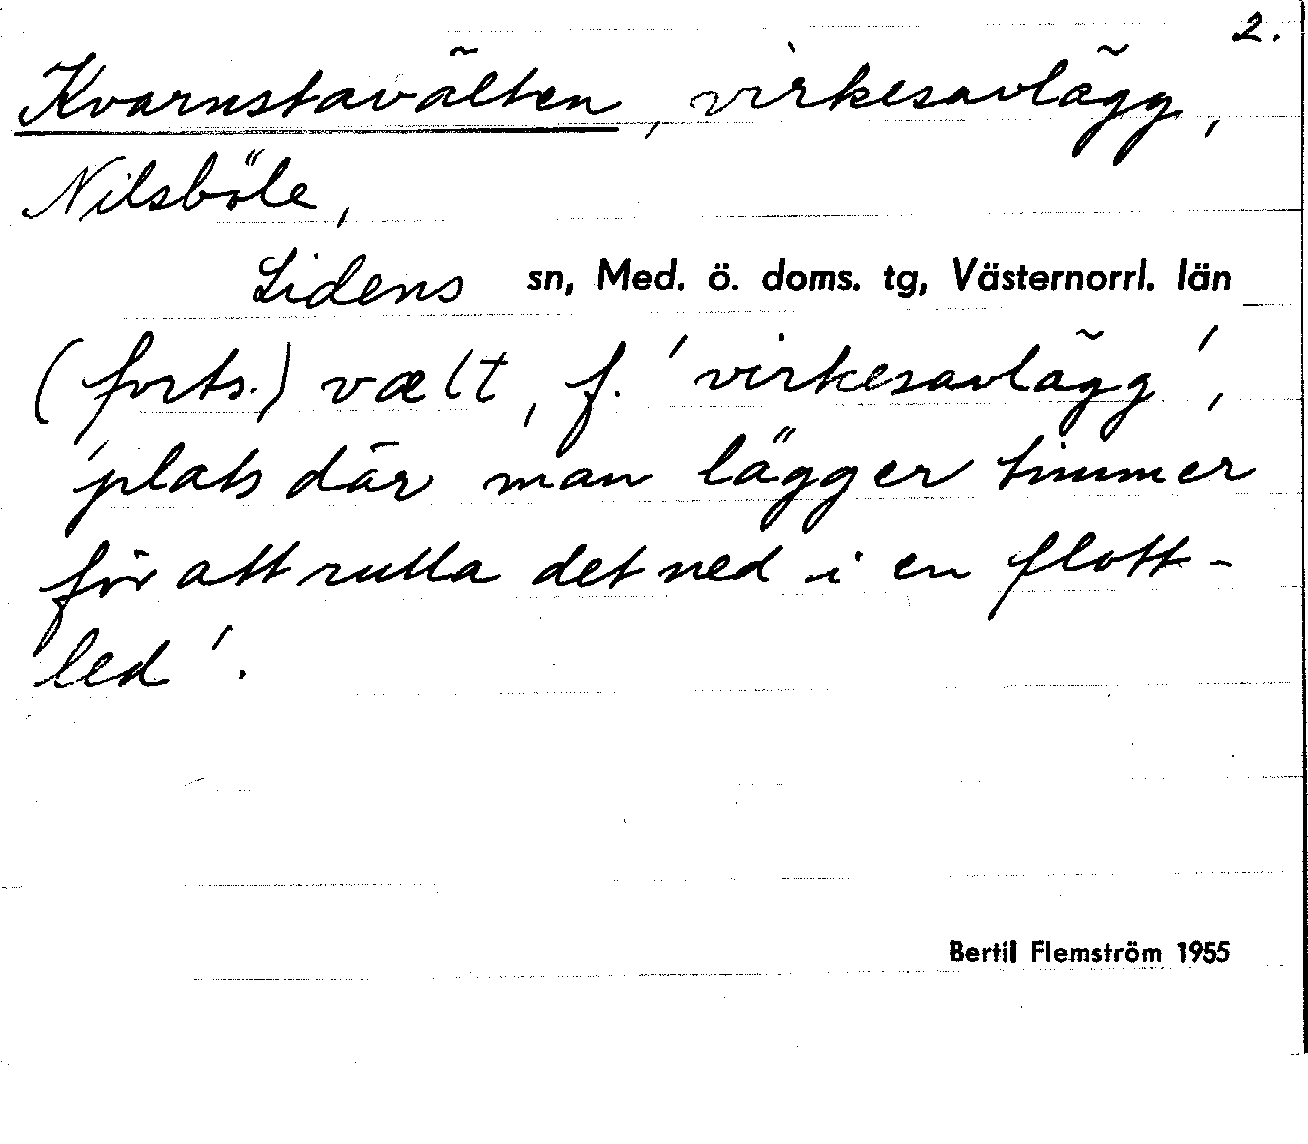 2.
Kvarnstavälten, virkesavlägg,
Nilsböle,
Lidens sn, Med. ö. doms. tg, Västernorrl. län
(forts.) vælt, f. 'virkesavlägg',
'plats där man lägger timmer
för att rulla det ned i en flott-
led'.
Bertil Flemström 1955